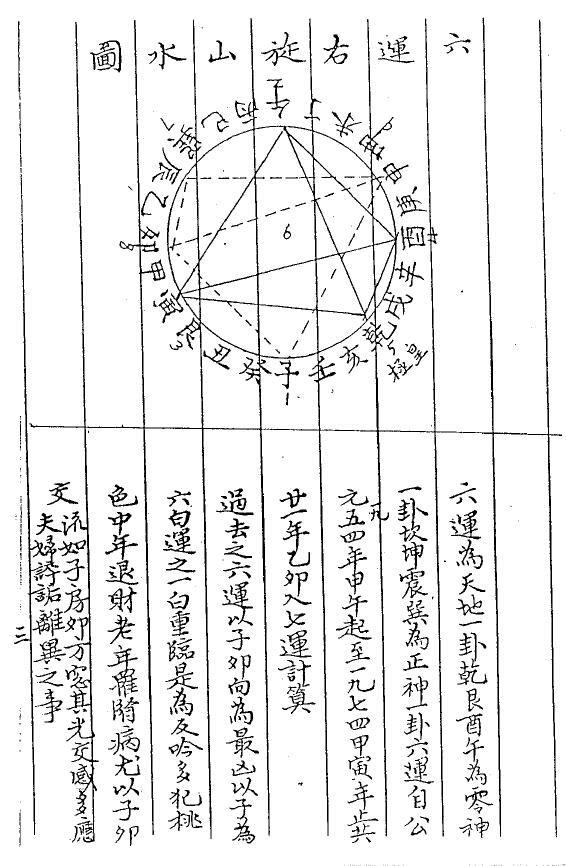 六運右旋山水圖
午
丁
未
坤
申
庚
酉
辛
戌
乾
5
極皇
亥
壬
子
1
癸
丑
艮
3
寅
甲
卯
8
乙
辰
巽
巳
丙
6
六運為天地一卦乾艮酉午為零神
一卦坎坤震巽為正神一卦六運自公
元一九五四年甲午起至一九七四甲寅年止共
廿一年乙卯入七運計算
過去之六運以子卯向為最凶以子為
六白運之一白重臨是為反吟多犯桃
色中年退財老年罹病尤以子卯
交流如子房卯方窓其光交感多應
夫婦誶詬離異之事
三